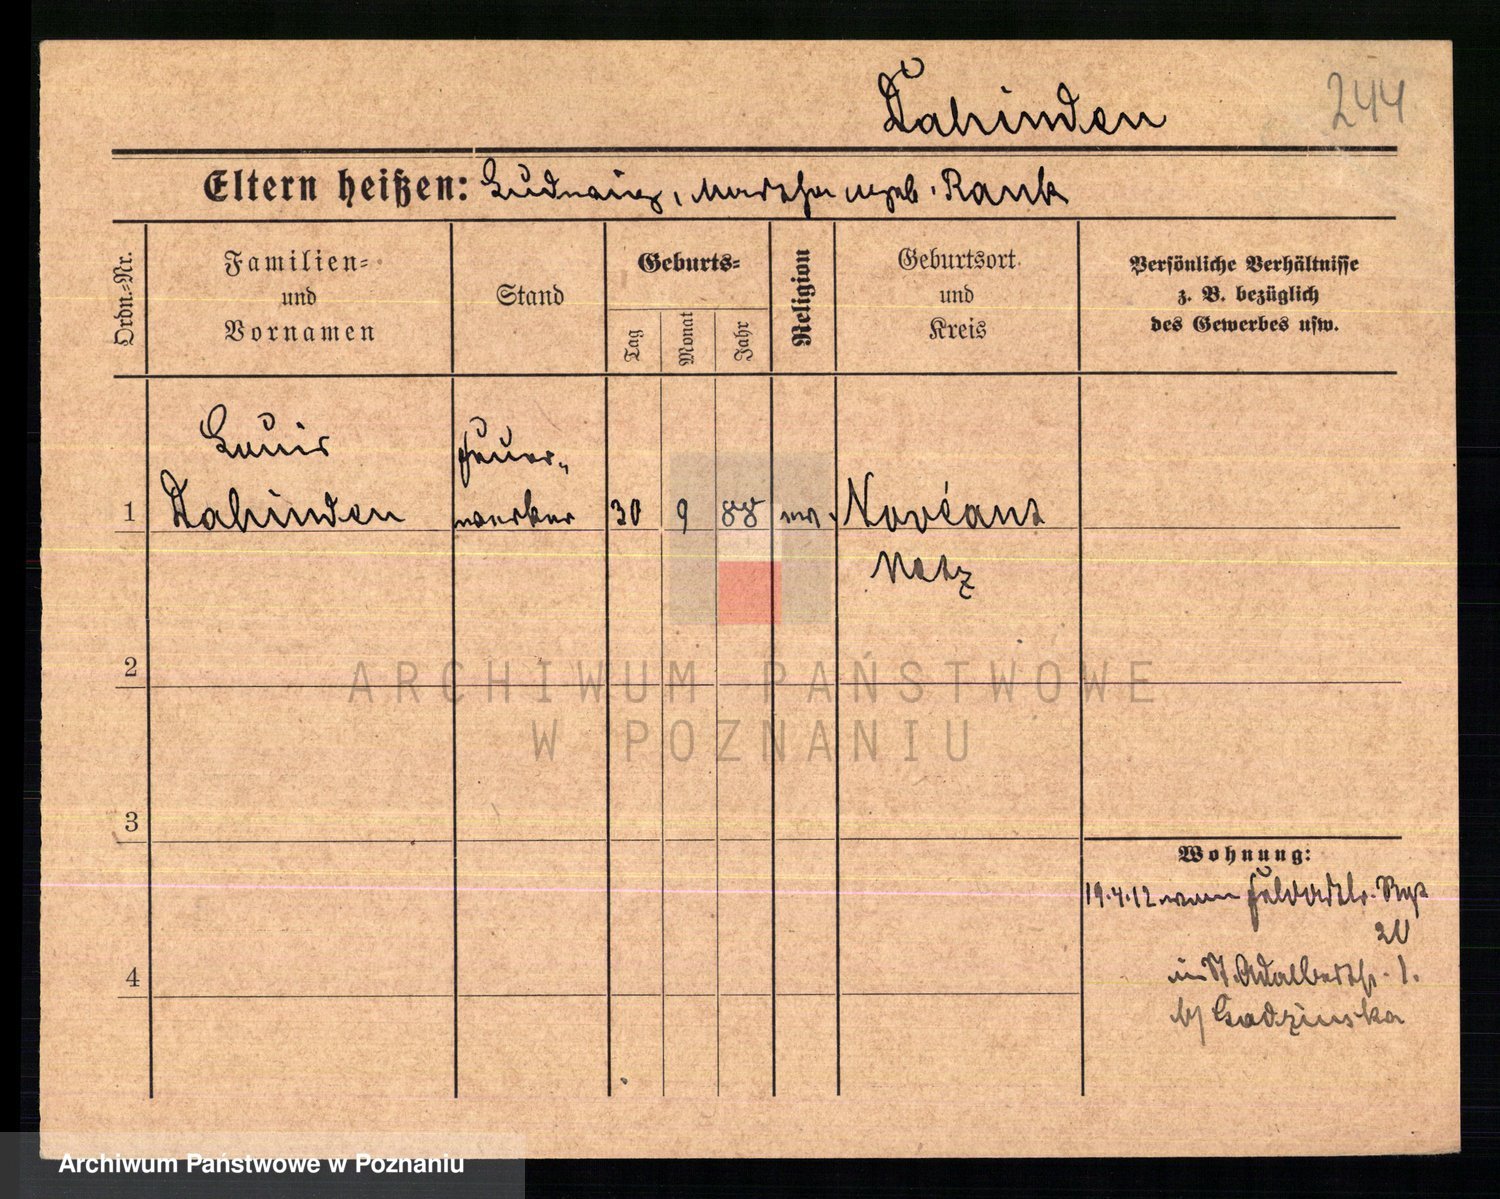 Dahinden
244
Eltern heißen: Ludwig, Martha geb. Rank
Ordn.-Nr.
Familien-
und
Vornamen
Stand
Geburts-
Tag
Monat
Jahr
Religion
Geburtsort
und
Kreis
Persönliche Verhältnisse
z. B. bezüglich
des Gewerbes usw.
Louis
Dahinden
Feuer-
werker
1
30
9
88
ev.
Novéant
Metz
2
3
4
Wohnung:
19.4.12 vom Feldartlr. Rgt
20
in St. Adalbertstr. 1.
b/ Gadzinska
ARCHIWUM PAŃSTWOWE
W POZNANIU
Archiwum Państwowe w Poznaniu